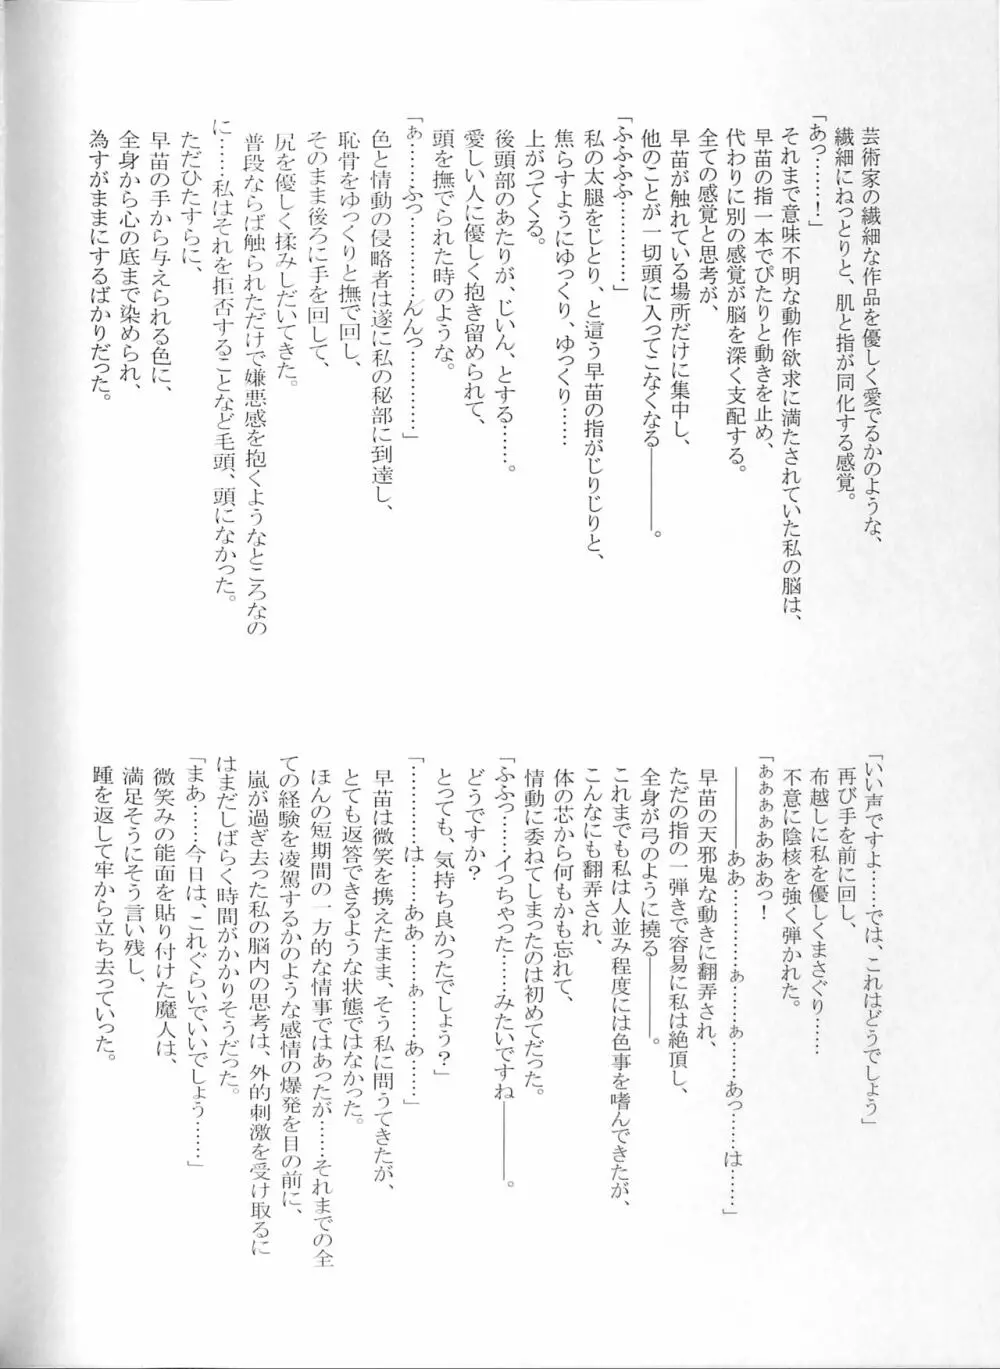 芸術家の繊細な作品を優しく愛でるかのような、
繊細にねっとりと、肌と指が同化する感覚。
「あっ………！」
それまで意味不明な動作欲求に満たされていた私の脳は、
早苗の指一本でぴたりと動きを止め、
代わりに別の感覚が脳を深く支配する。
全ての感覚と思考が、
早苗が触れている場所だけに集中し、
他のことが一切頭に入ってこなくなる――――。
「ふふふふ…………」
私の太腿をじとり、と這う早苗の指がじりじりと、
焦らすようにゆっくり、ゆっくり……
上がってくる。
後頭部のあたりが、じいん、とする……。
愛しい人に優しく抱き留められて、
頭を撫でられた時のような。
「ぁ……ふっ…………んんっ…………」
色と情動の侵略者は遂に私の秘部に到達し、
恥骨をゆっくりと撫で回し、
そのまま後ろに手を回して、
尻を優しく揉みしだいてきた。
普段ならば触られただけで嫌悪感を抱くようなところなの
に……私はそれを拒否することなど毛頭、頭になかった。
ただひたすらに、
早苗の手から与えられる色に、
全身から心の底まで染められ、
為すがままにするばかりだった。
「いい声ですよ……では、これはどうでしょう」
再び手を前に回し、
布越しに私を優しくまさぐり……
不意に陰核を強く弾かれた。
「ぁぁぁぁあああっ！
――――ああ…………ぁ……ぁ……あっ……は……」
早苗の天邪鬼な動きに翻弄され、
ただの指の一弾きで容易に私は絶頂し、
全身が弓のように撓る――――。
これまでも私は人並み程度には色事を嗜んできたが、
こんなにも翻弄され、
体の芯から何もかも忘れて、
情動に委ねてしまったのは初めてだった。
「ふふっ……イっちゃった……みたいですね――――。
どうですか？
とっても、気持ち良かったでしょう？」
「…………は……ああ……ぁ……あ……」
早苗は微笑を携えたまま、そう私に問うてきたが、
とても返答できるような状態ではなかった。
ほんの短期間の一方的な情事ではあったが……それまでの全
ての経験を凌駕するかのような感情の爆発を目の前に、
嵐が過ぎ去った私の脳内の思考は、外的刺激を受け取るに
はまだしばらく時間がかかりそうだった。
「まあ……今日は、これぐらいでいいでしょう……」
微笑みの能面を貼り付けた魔人は、
満足そうにそう言い残し、
踵を返して牢から立ち去っていった。